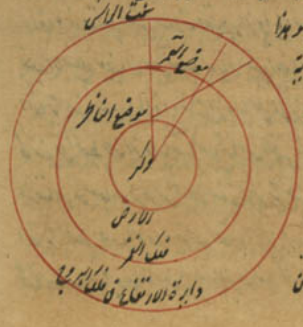 سمت الراس
موضع القمر
موضع الناظر
مركز
الارض
فلك القمر
دايرة الارتفاع فى فلك البروج